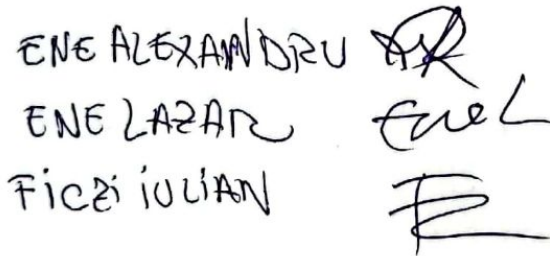 ENE ALEXANDRU
ENE LAZAR Ene L
FICZI IULIAN